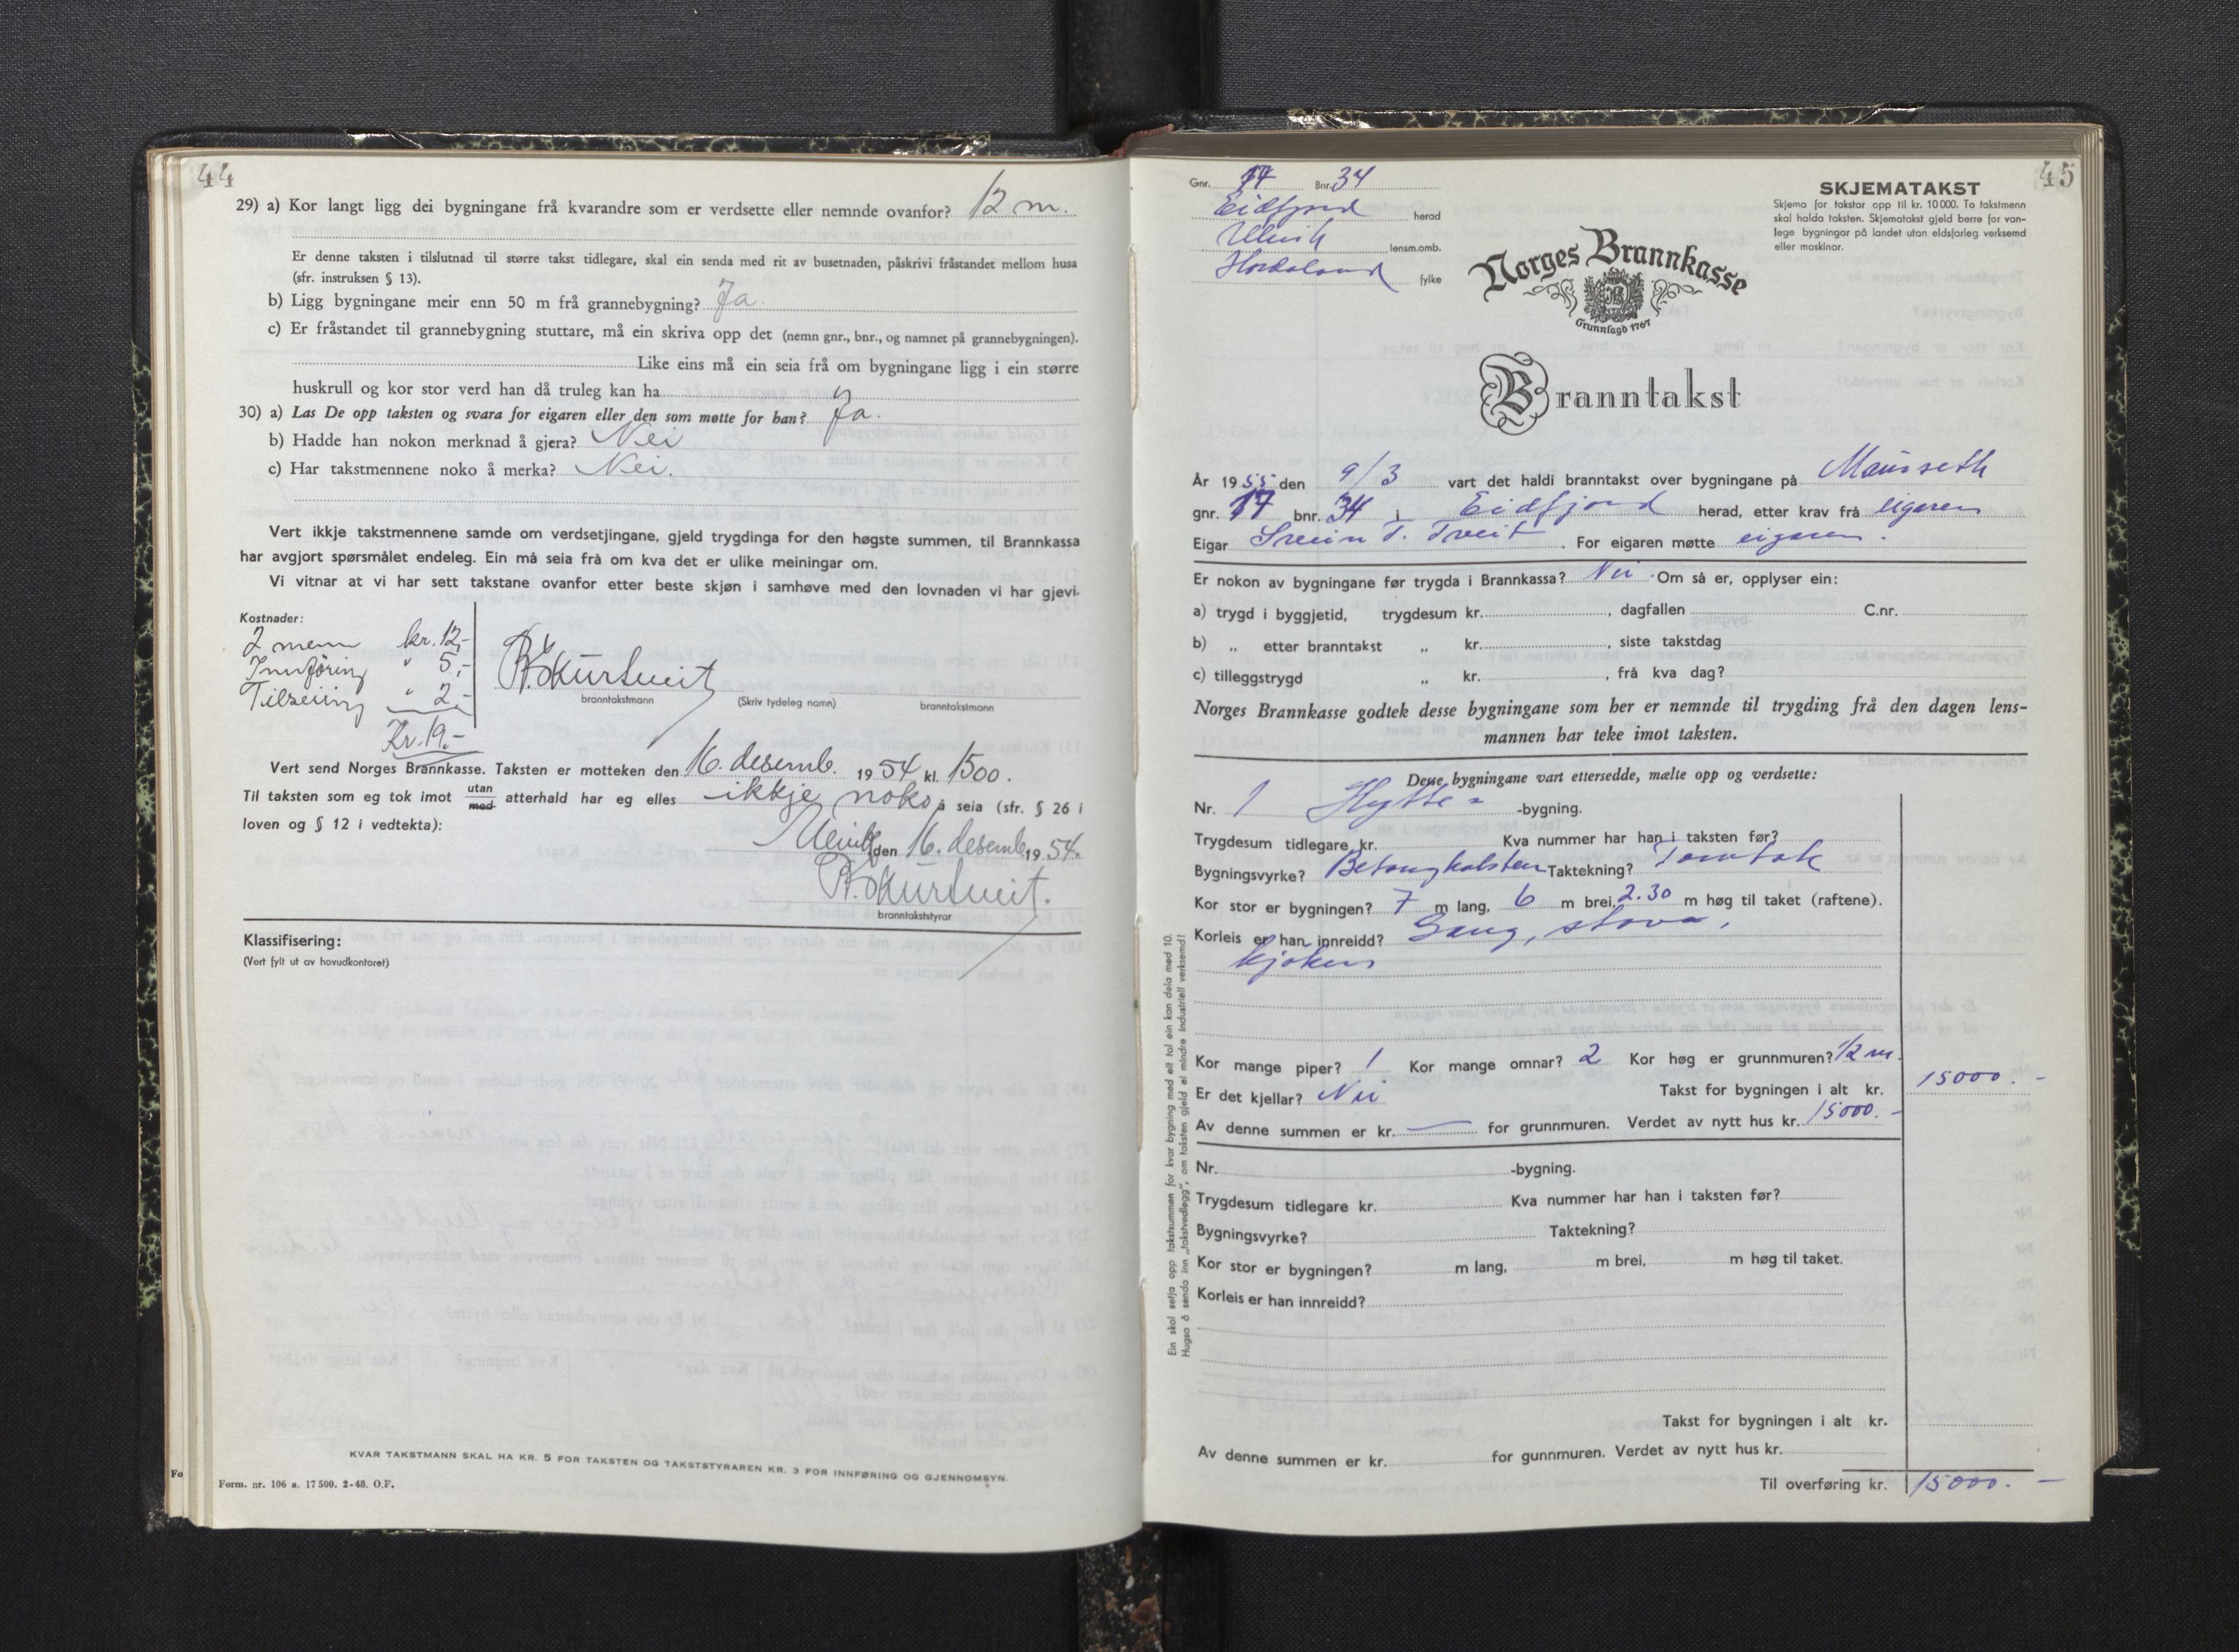 44
29) a) Kor langt ligg dei bygningane frå kvarandre som er verdsette eller nemnde ovanfor? 12 m.
Er denne taksten i tilslutnad til større takst tidlegare, skal ein senda med rit av busetnaden, påskrivi fråstandet mellom husa
(sfr. instruksen § 13).
b) Ligg bygningane meir enn 50 m frå grannebygning? Ja.
c) Er fråstandet til grannebygning stuttare, må ein skriva opp det (nemn gnr., bnr., og namnet på grannebygningen).
Like eins må ein seia frå om bygningane ligg i ein større
huskrull og kor stor verd han då truleg kan ha
30) a) Las De opp taksten og svara for eigaren eller den som møtte for han? Ja.
b) Hadde han nokon merknad å gjera? Nei
c) Har takstmennene noko å merka? Nei.
Vert ikkje takstmennene samde om verdsetjingane, gjeld trygdinga for den høgste summen, til Brannkassa
har avgjort spørsmålet endeleg. Ein må seia frå om kva det er ulike meiningar om.
Vi vitnar at vi har sett takstane ovanfor etter beste skjøn i samhøve med den lovnaden vi har gjevi.
Kostnader:
2 menn kr. 12,-
Innføring " 5,-
Tilseiing " 2,-
Kr. 19.-
branntakstmann (Skriv tydeleg namn) branntakstmann
Vert send Norges Brannkasse. Taksten er motteken den 16. desemb. 1954 kl. 1500.
Til taksten som eg tok imot utan med atterhald har eg elles ikkje noko å seia (sfr. § 26 i
loven og § 12 i vedtekta):
Ulvik den 16. desemb. 1954.
branntakststyrar
Klassifisering:
(Vert fylt ut av hovudkontoret)
KVAR TAKSTMANN SKAL HA KR. 5 FOR TAKSTEN OG TAKSTSTYRAREN KR. 3 FOR INNFØRING OG GJENNOMSYN.
Fo
Form. nr. 106 a. 17 500. 2-48. O.F.
45
Gnr. 17 Bnr. 34
Eidfjord herad
Ulvik lensm.omb.
Hordaland fylke
SKJEMATAKST
Skjema for takstar opp til kr. 10 000. To takstmenn
skal halda taksten. Skjematakst gjeld berre for van-
lege bygningar på landet utan eldsfarleg verksemd
eller maskinar.
Norges Brannkasse
Grunnlagd 1767
Branntakst
År 1955 den 9/3 vart det haldi branntakst over bygningane på Maurseth
gnr. 17 bnr. 34 i Eidfjord herad, etter krav frå eigaren
Eigar Svein T. Tveit. For eigaren møtte eigaren.
Er nokon av bygningane før trygda i Brannkassa? Nei. Om så er, opplyser ein:
a) trygd i byggjetid, trygdesum kr. , dagfallen C.nr.
b) „ etter branntakst „ kr. , siste takstdag
c) tilleggstrygd „ kr. , frå kva dag?
Norges Brannkasse godtek desse bygningane som her er nemnde til trygding frå den dagen lens-
mannen har teke imot taksten.
Desse bygningane vart ettersedde, mælte opp og verdsette:
Nr. 1 Hytte- -bygning.
Trygdesum tidlegare kr. Kva nummer har han i taksten før?
Bygningsvyrke? Betongholsten Taktekning? Torvtak
Kor stor er bygningen? 7 m lang, 6 m brei, 2.30 m høg til taket (raftene).
Korleis er han innreidd? Gang, stova,
kjøken
Kor mange piper? 1 Kor mange omnar? 2 Kor høg er grunnmuren? 1/2 m.
Er det kjellar? Nei Takst for bygningen i alt kr. 15000.-
Av denne summen er kr. — for grunnmuren. Verdet av nytt hus kr. 15000.-
Nr. -bygning.
Trygdesum tidlegare kr. Kva nummer har han i taksten før?
Bygningsvyrke? Taktekning?
Kor stor er bygningen? m lang, m brei, m høg til taket.
Korleis er han innreidd?
Takst for bygningen i alt kr.
Av denne summen er kr. for gunnmuren. Verdet av nytt hus kr.
Til overføring kr. 15000.-
Ein skal setja opp takstsummen for kvar bygning med eit tal ein kan dela med 10.
Hugsa å senda inn „takstvedlegg", om taksten gjeld ei mindre industriell verksemd!